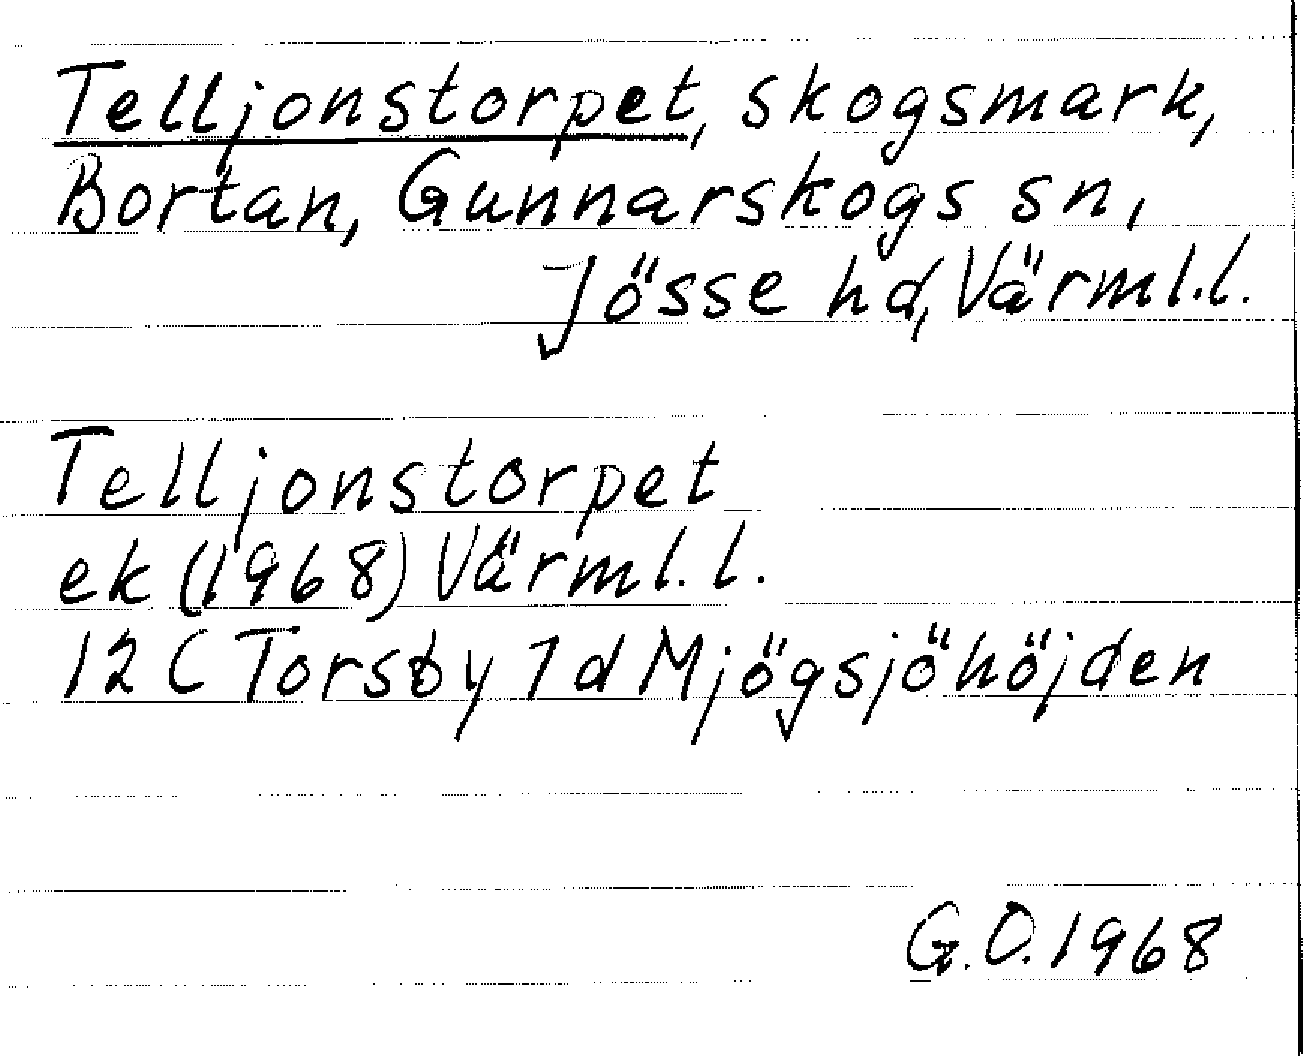 Telljonstorpet, skogsmark,
Bortan, Gunnarskogs sn,
Jösse hd, Värml.l.
Telljonstorpet
ek (1968) Värml.l.
12 C Torsby 7 d Mjögsjöhöjden
G.O. 1968